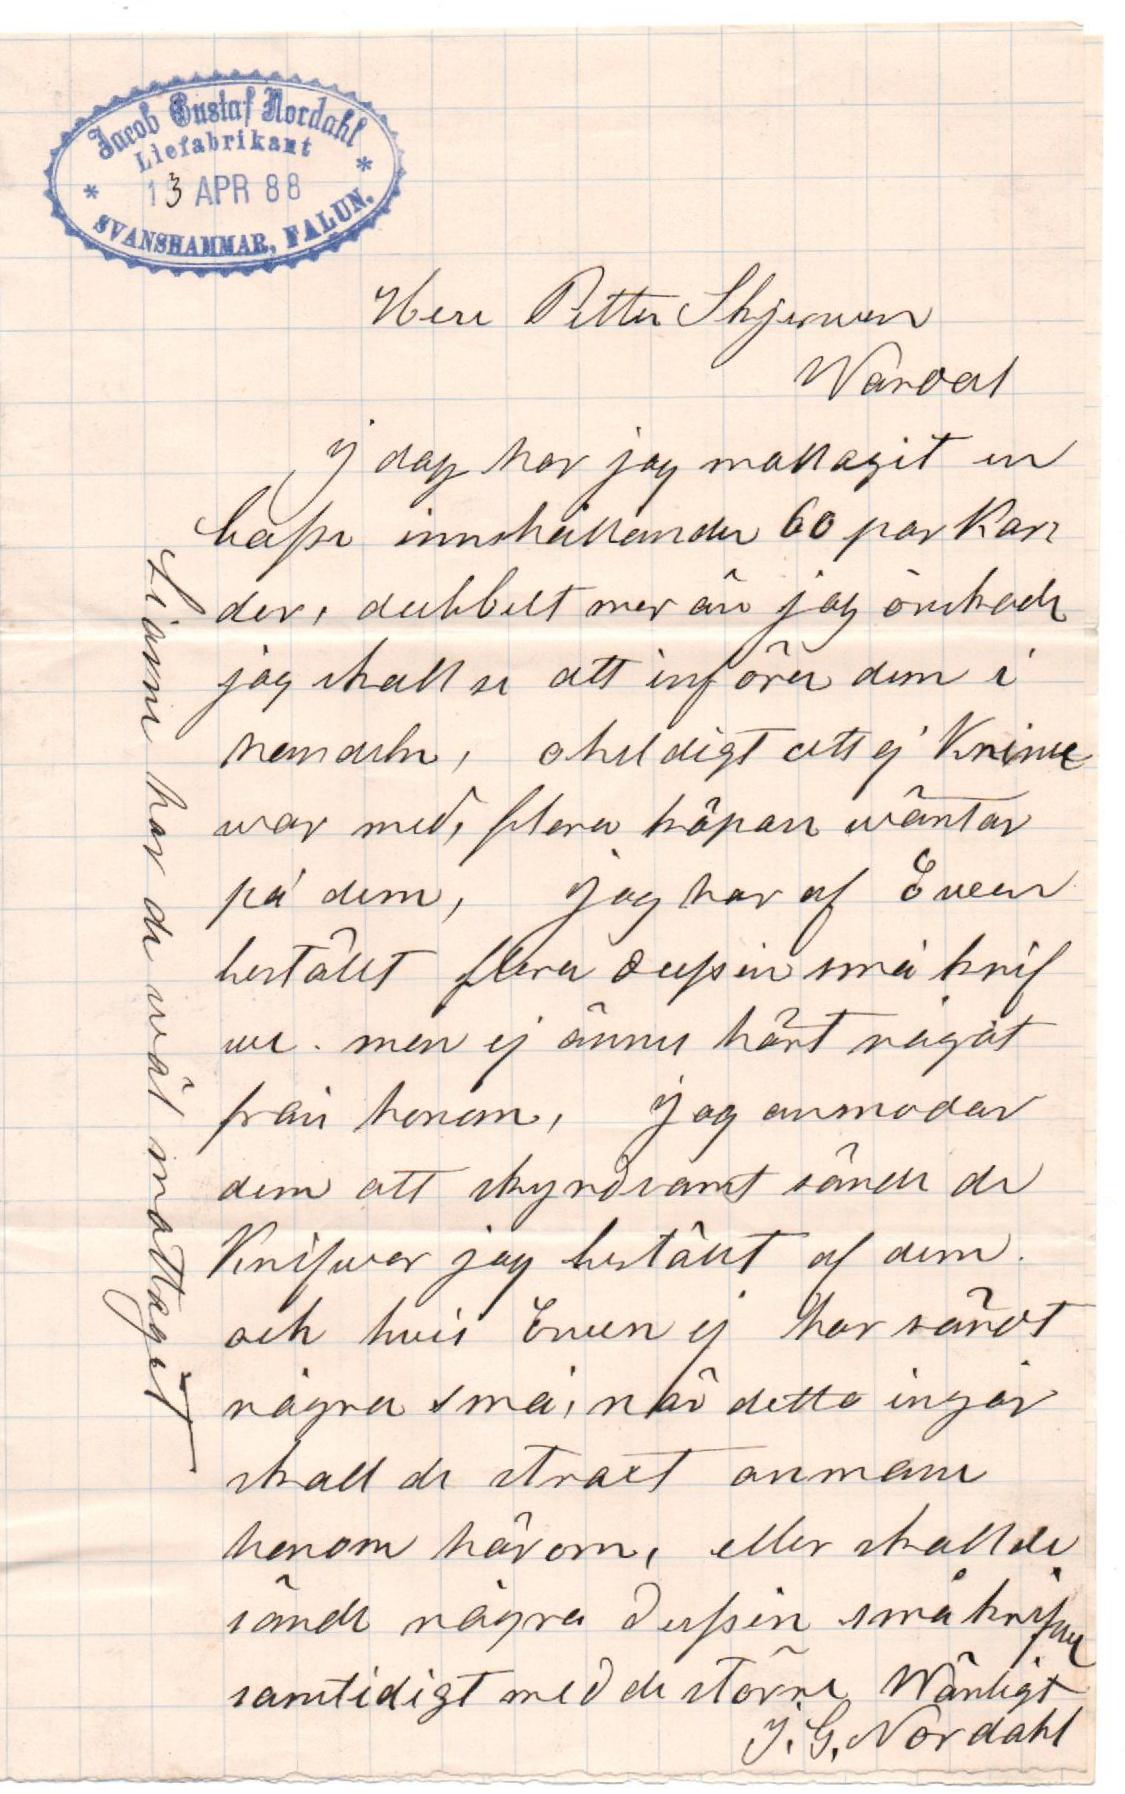 Jacob Gustaf Nordahl
Liefabrikant
* 13 APR 88 *
SVANSHAMMAR, FALUN.
Herr Petter Skjerwen
Wardal
Ij dag har jag mottagit en
kasse innehållande 60 par Kar-
der, dubbelt mer än jag önskade
jag skall se att införa dem i
handeln, oheldigt att ej Knive
war med, flera köpare wäntar
på dem, Jag har af Even
bestält flera dussin små knif
we. men ej ännu hört något
från honom, Jag anmodar
dem att skyndsamt sände de
Knifwar jag bestält af dem.
och hvis Ewen ej har sändt
några små, när detta ingår
skall de straxt anmane
honom härom, eller skall de
sände några dussin små knifwe
samtidigt med de större Wänligt
J. G. Nordahl
Liarne har de wäl mottagit